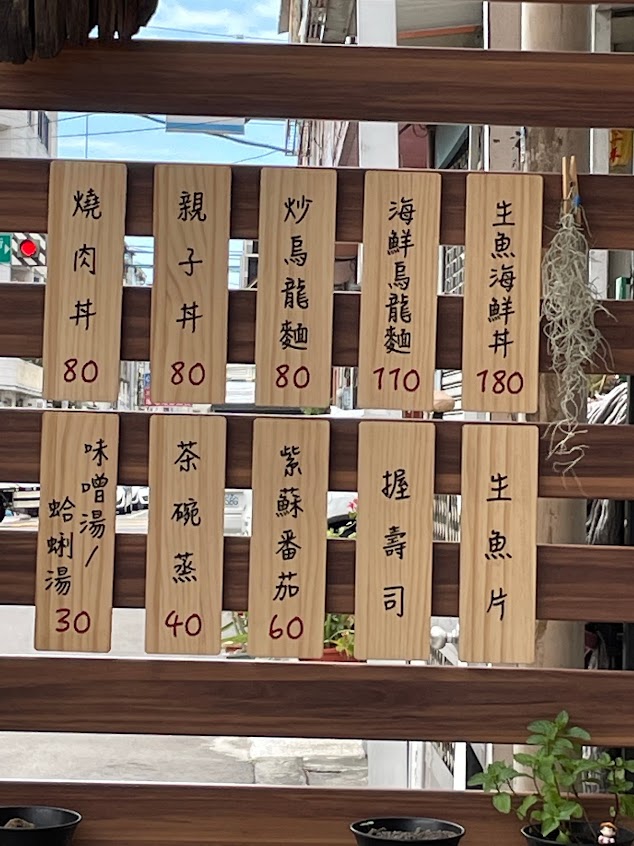 生魚海鮮丼
180
海鮮烏龍麵
110
炒烏龍麵
80
親子丼
80
燒肉丼
80
生魚片
握壽司
紫蘇番茄
60
茶碗蒸
40
味噌湯/
蛤蜊湯
30